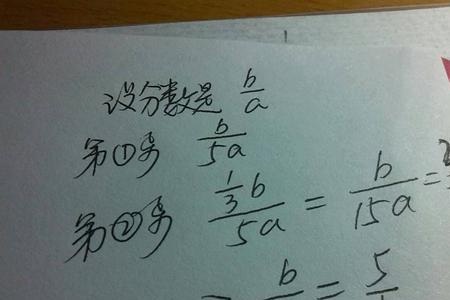 设分数是 b/a
第①步 b/5a
第②步 (1/3 b)/5a = b/15a =
b = 5